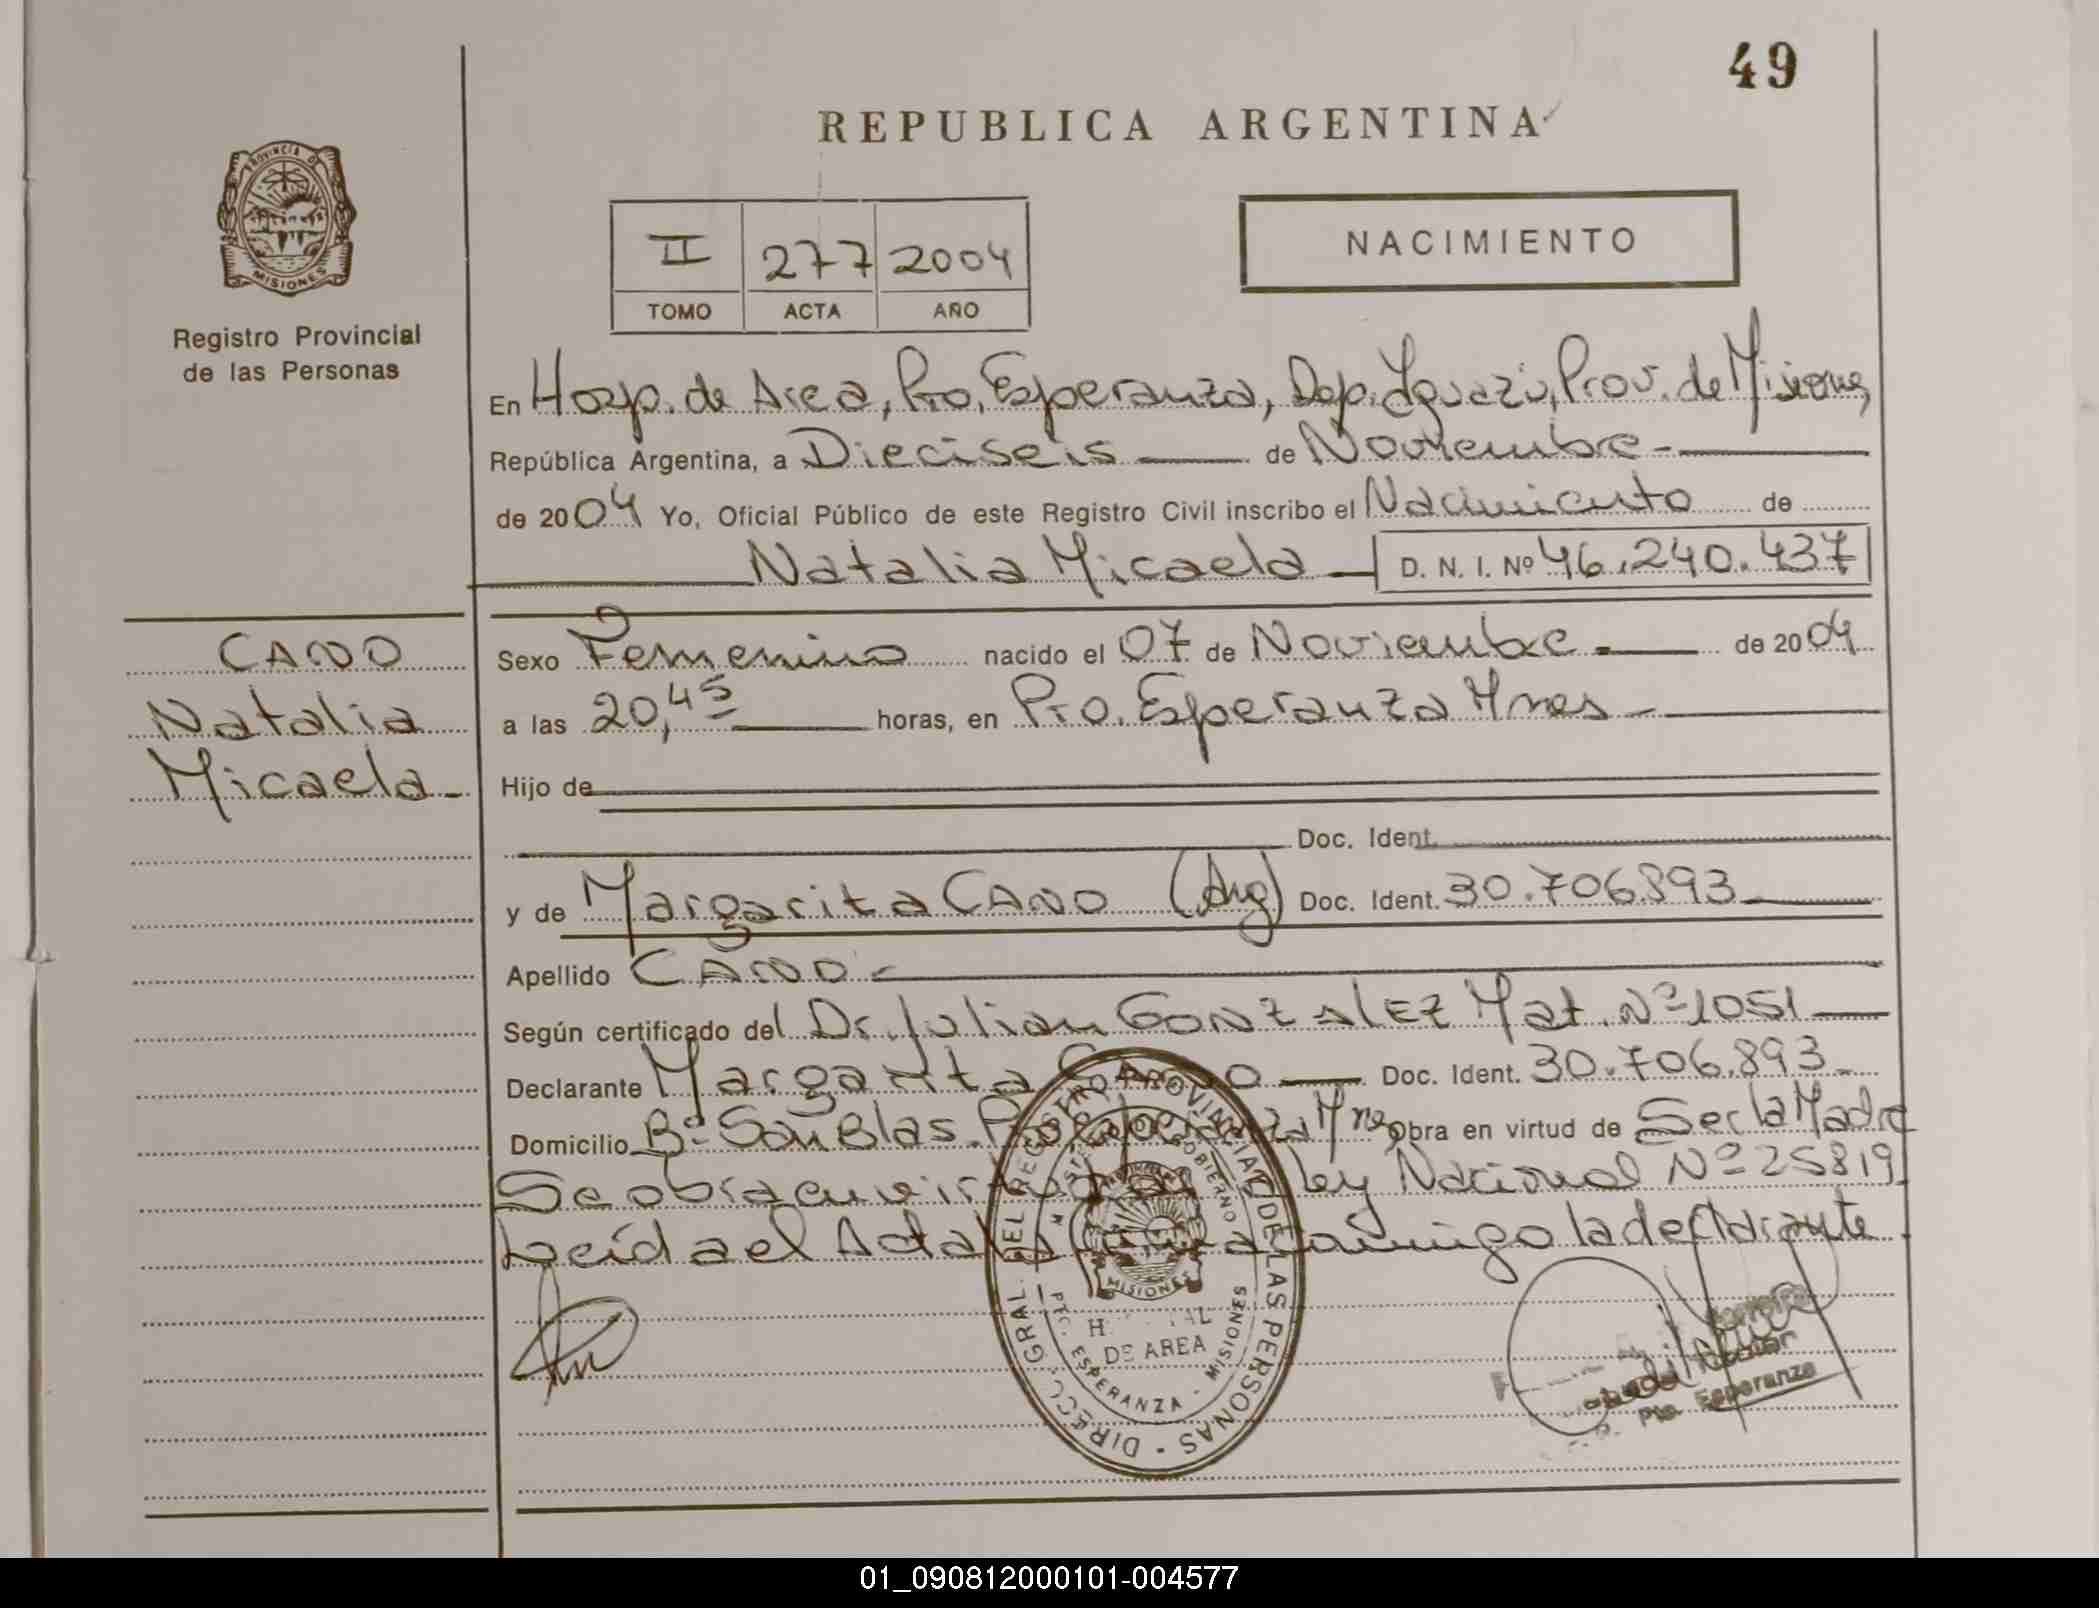 49
REPUBLICA ARGENTINA
PROVINCIA DE
MISIONES
Registro Provincial
de las Personas
II 277 2004
TOMO ACTA AÑO
NACIMIENTO
En Hosp. de Area, Pto. Esperanza, Dep. Iguazú, Prov. de Misiones,
República Argentina, a Dieciseis de Noviembre
de 2004 Yo, Oficial Público de este Registro Civil inscribo el Nacimiento de
Natalia Micaela D. N. I. Nº 46.240.437
CANO
Natalia
Micaela
Sexo Femenino nacido el 07 de Noviembre de 2004
a las 20,45 horas, en Pto. Esperanza Mnes
Hijo de
Doc. Ident.
y de Margarita CANO (Arg) Doc. Ident. 30.706.893
Apellido CANO
Según certificado del Dr. Julian GONZALEZ Mat. Nº 1051
Declarante Margarita Cano Doc. Ident. 30.706.893
Domicilio Bº San Blas. Pto. Esperanza Mnes Obra en virtud de Ser la Madre
Se obra en virtud Ley Nacional Nº 25819
Leída el Acta conmigo la declarante
DIRECC. GRAL. DEL REGISTRO PROVINCIAL DE LAS PERSONAS
GOBIERNO
MISIONES
DE AREA
ESPERANZA - MISIONES
Pto. Esperanza
01_090812000101-004577